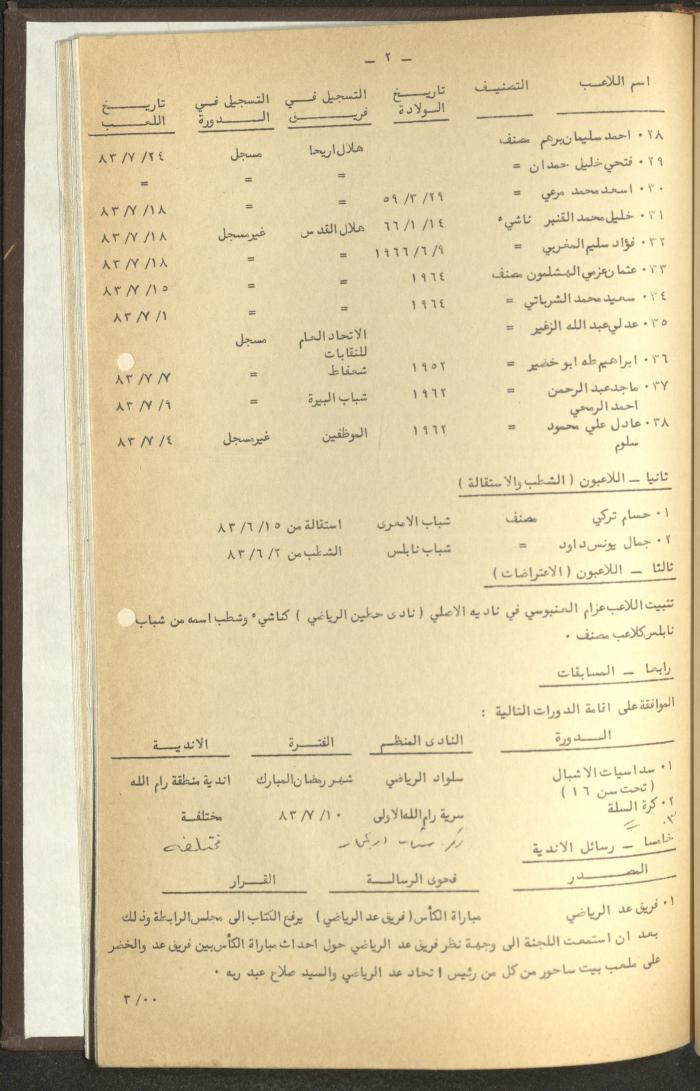 - ٢ -
اسم اللاعب التصنيف تاريخ الولادة التسجيل في فريق التسجيل في الدورة تاريخ اللعب
٢٨٠ احمد سليمان برهم مصنف هلال اريحا مسجل ٨٣/٧/٢٤
٢٩٠ فتحي خليل حمدان = = = =
٣٠٠ اسعد محمد مرعي = ٥٩/٣/٢٩ = = ٨٣/٧/١٨
٣١٠ خليل محمد القنبر ناشيء ٦٦/١/١٤ هلال القدس غير مسجل ٨٣/٧/١٨
٣٢٠ فؤاد سليم المغربي = ١٩٦٦/٦/٩ = = ٨٣/٧/١٨
٣٣٠ عثمان عزمي الهشلمون مصنف ١٩٦٤ = = ٨٣/٧/١٥
٣٤٠ سعيد محمد الشرباتي = ١٩٦٤ = = ٨٣/٧/١
٣٥٠ عدلي عبد الله الزغير = الاتحاد العام مسجل
للنقابات
٣٦٠ ابراهيم طه ابو خضير = ١٩٥٢ شعفاط = ٨٣/٧/٧
٣٧٠ ماجد عبد الرحمن = ١٩٦٢ شباب البيرة = ٨٣/٧/٩
احمد الرمحي
٣٨٠ عادل علي محمود = ١٩٦٢ الموظفين غير مسجل ٨٣/٧/٤
سلوم
ثانيا - اللاعبون ( الشطب والاستقالة )
٠١ حسام تركي مصنف شباب الامعرى استقالة من ٨٣/٦/١٥
٠٢ جمال يونس داود = شباب نابلس الشطب من ٨٣/٦/٢
ثالثا - اللاعبون ( الاعتراضات )
تثبيت اللاعب عزام العنبوسي في ناديه الاصلي ( نادى حطين الرياضي ) كناشيء وشطب اسمه من شباب
نابلس كلاعب مصنف ٠
رابعا - المسابقات
الموافقة على اقامة الدورات التالية :
الدورة النادى المنظم الفترة الاندية
٠١ سداسيات الاشبال سلواد الرياضي شهر رمضان المبارك اندية منطقة رام الله
( تحت سن ١٦ )
٠٢ كرة السلة سرية رام الله الاولى ٨٣/٧/١٠ مختلفة
٣. = مختلفه
خامسا - رسائل الاندية
المصدر فحوى الرسالة القرار
٠١ فريق عد الرياضي مباراة الكأس ( فريق عد الرياضي ) يرفع الكتاب الى مجلس الرابطة وذلك
بعد ان استمعت اللجنة الى وجهة نظر فريق عد الرياضي حول احداث مباراة الكأس بين فريق عد والخضر
على ملعب بيت ساحور من كل من رئيس اتحاد عد الرياضي والسيد صلاح عبد ربه ٠
٣/٠٠